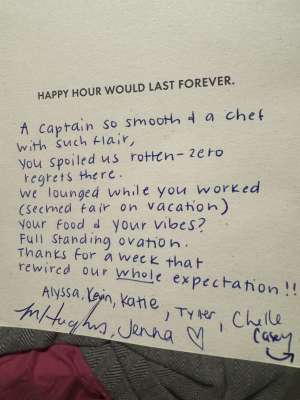 HAPPY HOUR WOULD LAST FOREVER.
A captain so smooth & a chef
with such flair,
you spoiled us rotten-zero
regrets there.
we lounged while you worked
(seemed fair on vacation)
your food & your vibes?
Full standing ovation.
Thanks for a week that
rewired our whole expectation!!
Alyssa, Kevin, Katie, Tyler, Chelle
Jenna ♡ Casey